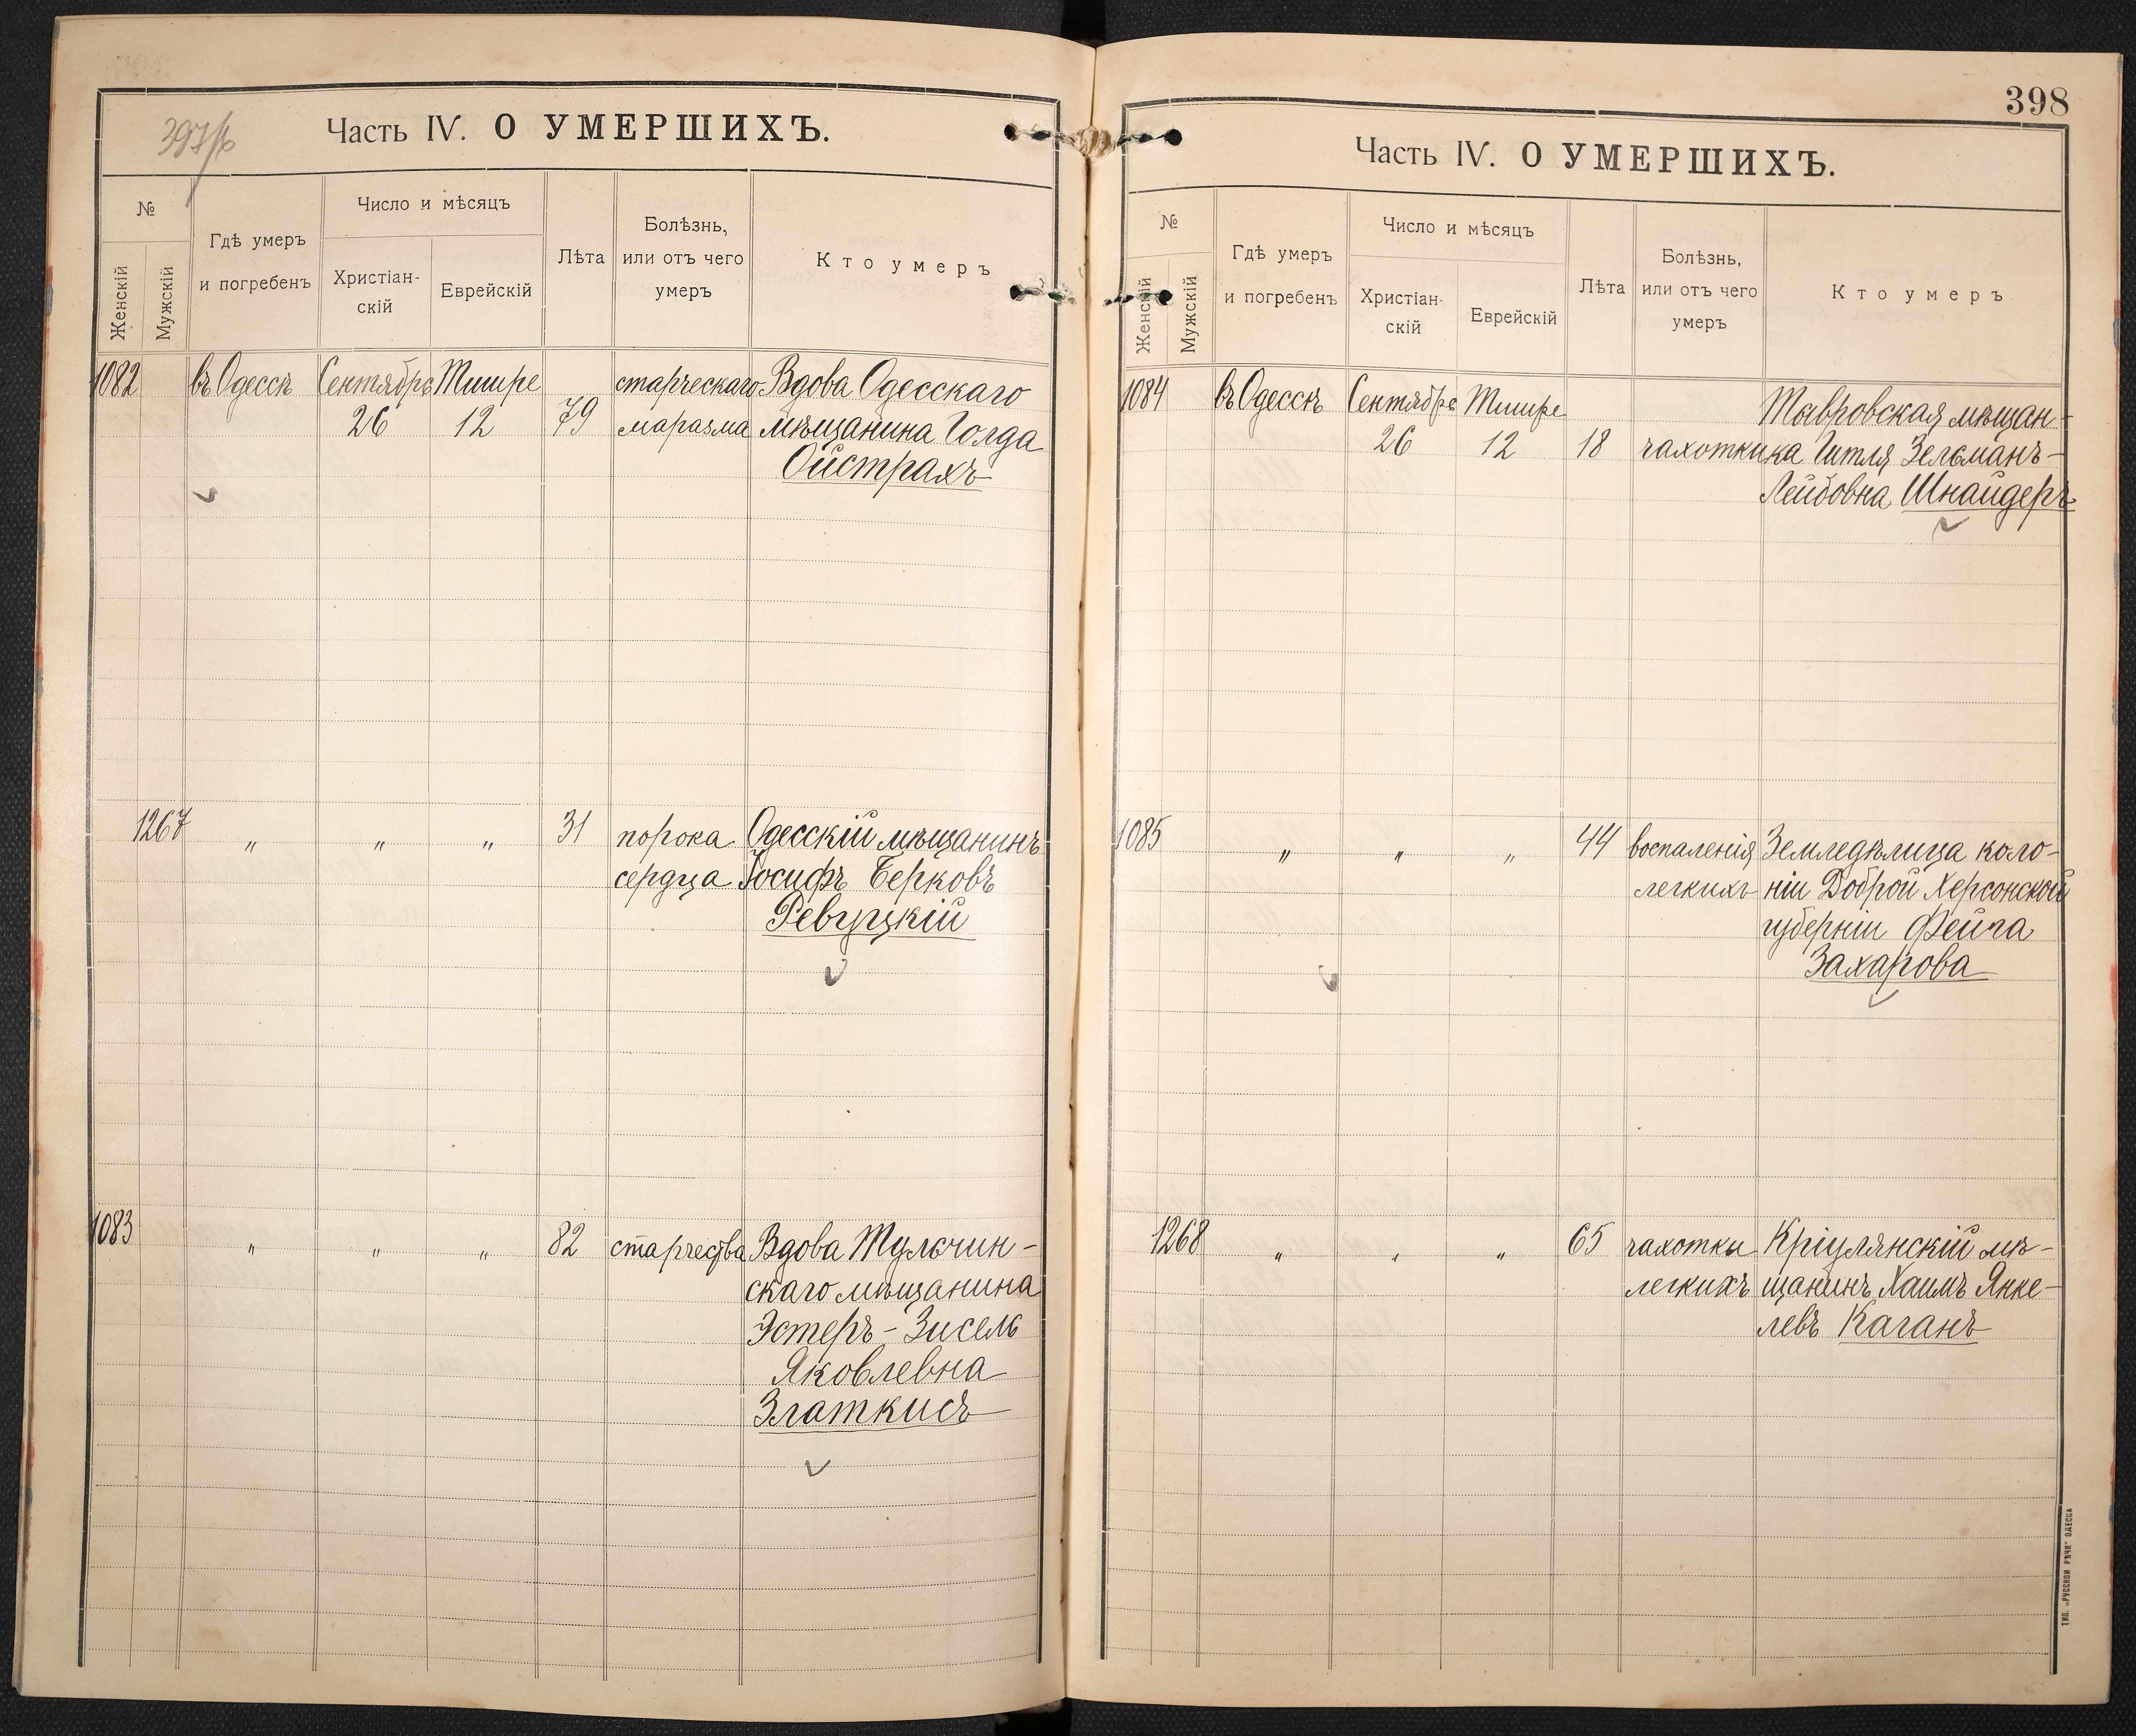 397/б
Часть IV. О УМЕРШИХЪ.
№
Женскій
Мужскій
Гдѣ умеръ
и погребенъ
Число и мѣсяцъ
Христіан-
скій
Еврейскій
Лѣта
Болѣзнь,
или отъ чего
умеръ
Кто умеръ
1082 въ Одессѣ Сентября Тишре старческаго Вдова Одесскаго
26 12 79 маразма мѣщанина Голда
Ойстрахъ
1267 „ „ „ 31 порока Одесскій мѣщанинъ
сердца Іосифъ Берковъ
Ревуцкій
1083 „ „ „ 82 старчества Вдова Тульчин-
скаго мѣщанина
Эстеръ-Зисель
Яковлевна
Златкисъ
398
Часть IV. О УМЕРШИХЪ.
№
Женскій
Мужскій
Гдѣ умеръ
и погребенъ
Число и мѣсяцъ
Христіан-
скій
Еврейскій
Лѣта
Болѣзнь,
или отъ чего
умеръ
Кто умеръ
1084 въ Одессѣ Сентября Тишре Тавровская мѣщан-
26 12 18 чахотки ка Гитля Зельманъ-
Лейбовна Шнайдеръ
1085 „ „ „ 44 воспаленія Земледѣлица коло-
легкихъ ніи Доброй Херсонской
губерніи Фейга
Захарова
1268 „ „ „ 65 чахотки Кріулянскій мѣ-
легкихъ щанинъ Хаимъ Янке-
левъ Каганъ
ТИП. „РУССКОЙ РѢЧИ" ОДЕССА